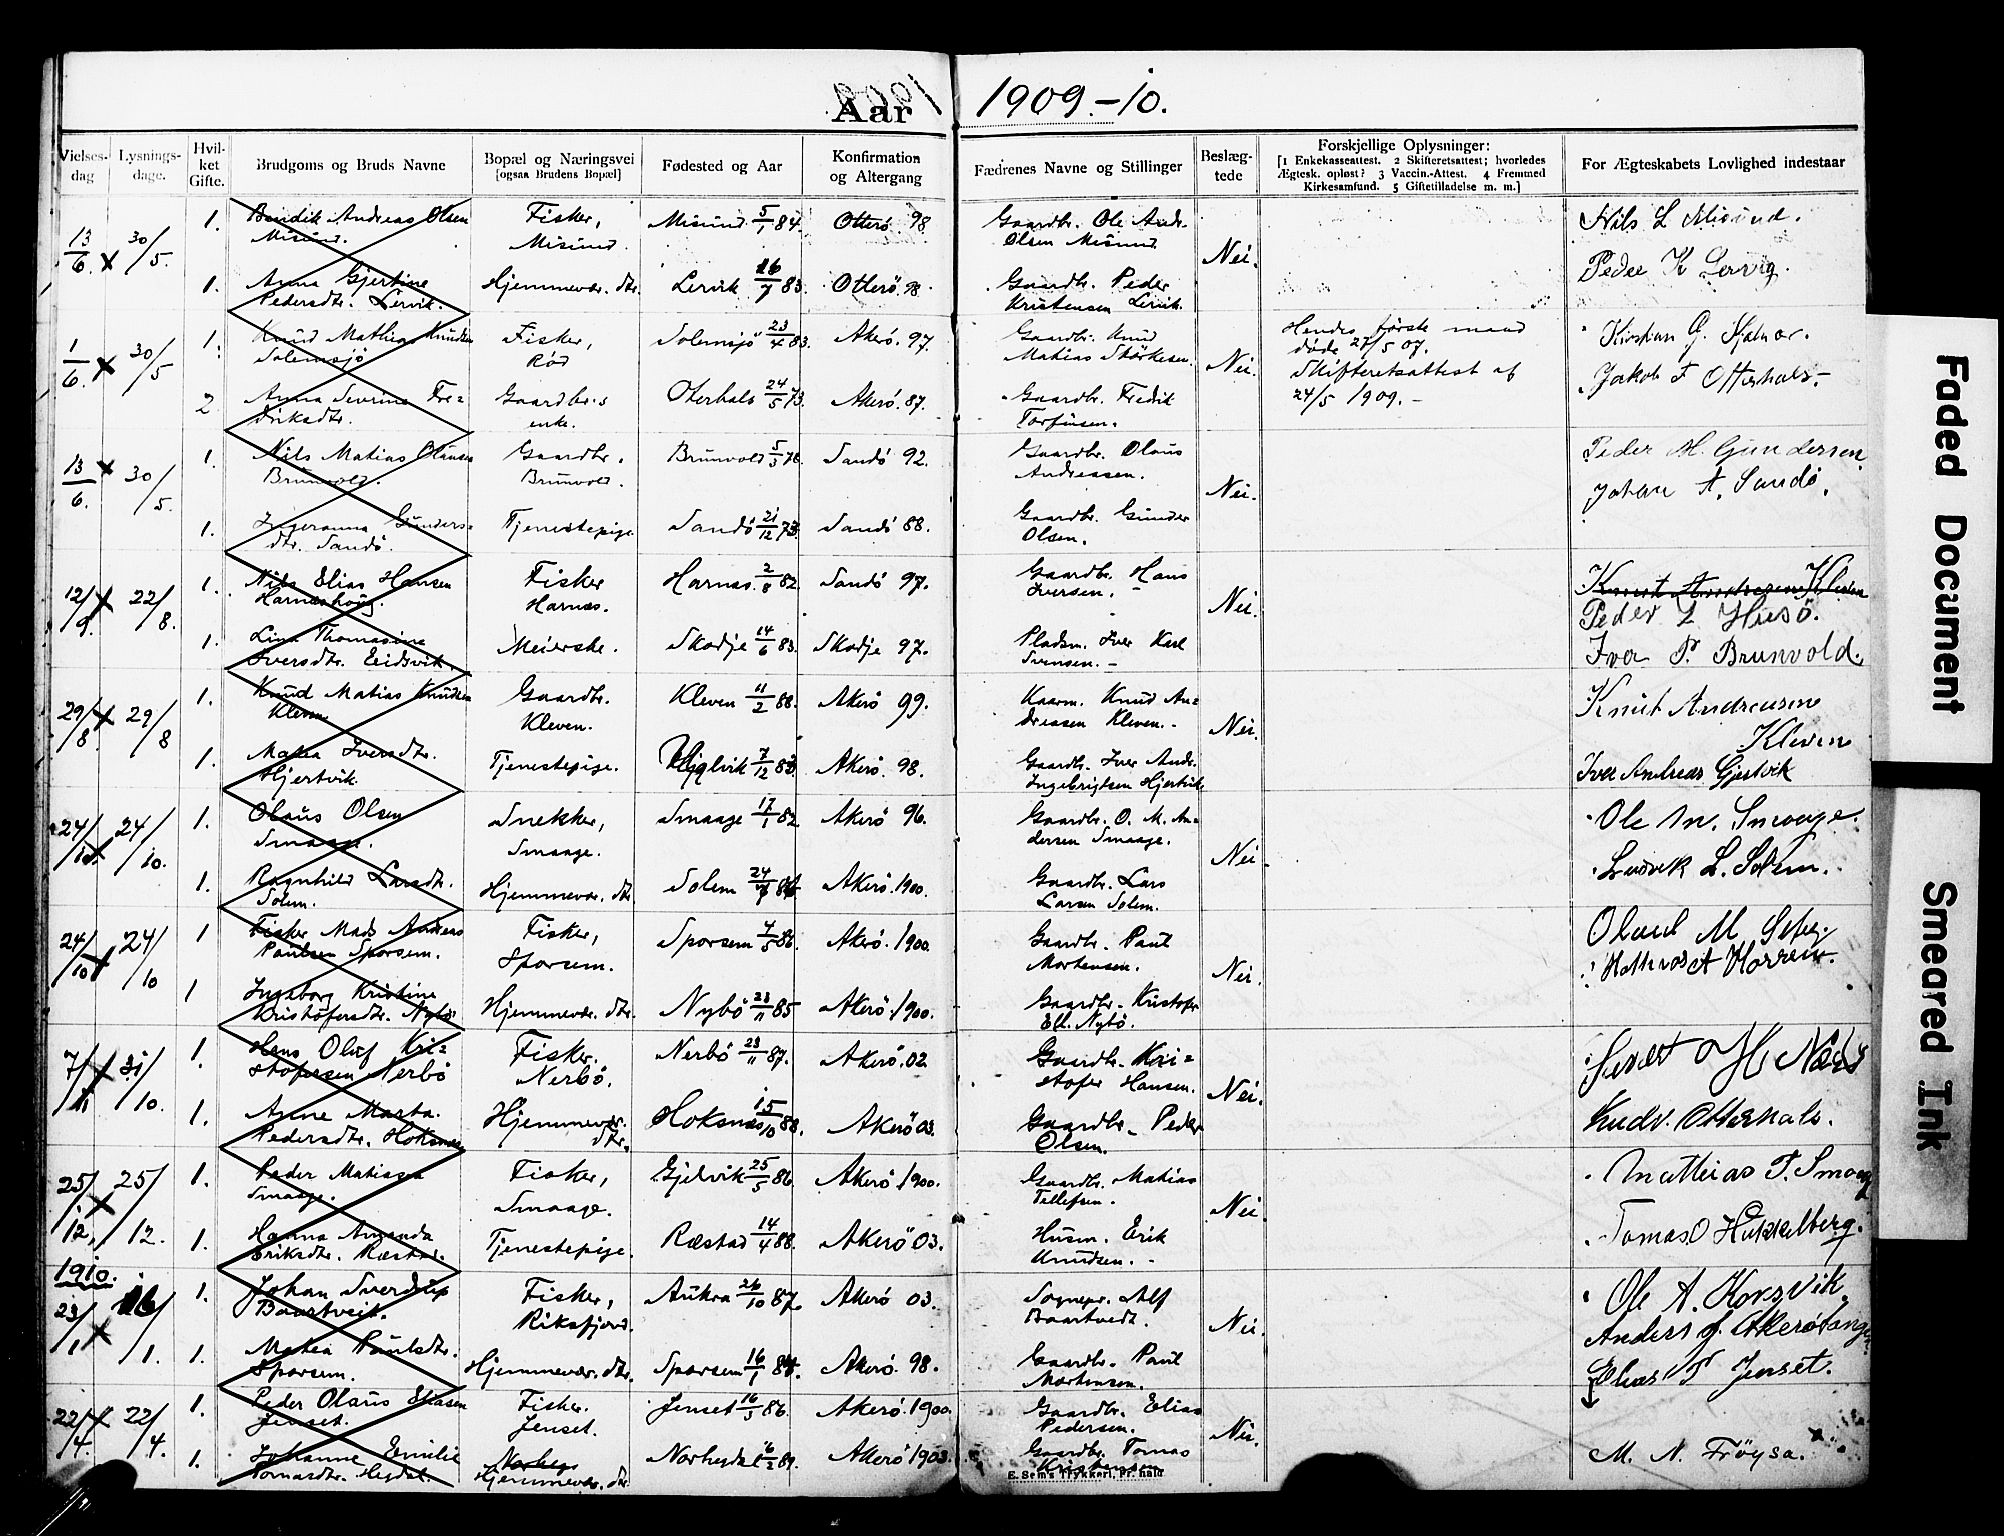 Aar 1909.-10.
Vielses-dag
Lysnings-dage.
Hvil-ket Gifte.
Brudgoms og Bruds Navne
Bopæl og Næringsvei [ogsaa Brudens Bopæl]
Fødested og Aar
Konfirmation og Altergang
Fædrenes Navne og Stillinger
Beslæg-tede
Forskjellige Oplysninger:
[1 Enkekasseattest. 2 Skifteretsattest; hvorledes
Ægtesk. opløst? 3 Vaccin.-Attest. 4 Fremmed
Kirkesamfund. 5 Giftetilladelse m. m.]
For Ægteskabets Lovlighed indestaar
13/6. 30/5. 1. Bendik Andreas Olsen Fisker, Misund 5/1 84. Otterö 98 Gaardbr. Ole Andr. Nei. Nils L Misund.
Misund. Misund. Olsen Misund
1. Anna Gjertine Hjemmevær. dtr. Lervik 16/7 83. Otterö. 98. Gaardbr. Peder Peder K Lervig.
Pedersdtr. Lervik. Kristensen Lervik.
1/6. 30/5 1. Knud Mathias Knudsen Fisker, Solemsjö 23/4 83. Akerö. 97. Gaardbr. Knud Nei. Hendes første mand
Solemsjö Rød Matias döde 27/5 07.
Skifteretsattest af
2 Anna Sevrine Fre= Gaardbr.s Oterhals 24/5 73. Akerö. 87. Gaardbr. Fredrik 24/5 1909. - Jakob F Otterhals.-
driksdtr. enke. Torfinsen.
13/6. 30/5. 1. Nils Matias Olausen Gaardbr. Brunvold 5/3 78. Sandö 92. Gaardbr. Olaus Nei. Peder M. Gundersen
Brunvold. Brunvold. Andreassen. Johan A. Sandö.
1. Ingeranna Gunders= Tjenestepige Sandö 21/12 73. Sandö 88. Gaardbr. Gunder
dtr. Sandö. Olsen.
12/9. 22/8. 1. Nils Elias Hansen Fisker Harnæs. 2/8 82. Sandö 97. Gaardbr. Hans Nei. Knut Andresen Kleven
Harnæshoug. Harnæs. Iversen. - Peder L Husö.
1. Lina Thomasine Meierske. Skodje 14/6 83. Skodje 97. Pladsm. Iver Karl Iver P. Brunvold.
Iversdtr. Eidsvik. Svensen. -
29/8. 29/8 1. Knud Matias Knudsen Gaardbr. Kleven 11/2 88. Akerö 99. Kaarm. Knud An= Nei. Knut Andreasen
Kleven. Kleven. dreasen Kleven. - Kleven
1. Matea Iversdtr. Tjenestepige. 7/12 83. Akerö. 98. Gaardbr. Iver Andr. Iver Andreas Gjertvik
Hjertvik Ingebrigtsen Hjertvik
24/10. 24/10. 1. Olaus Olsen Snekker, Smaage 17/1 82. Akerö 96. Gaardbr. O. M. An= Nei. Ole M. Smaage.
Smaage. Smaage. dersen Smaage.
1. Ragnhild Larsdtr. Hjemmevær. dtr. Solem 24/7 84. Akerö. 1900. Gaardbr. Lars Ludvik L. Solem.
Solem. Larsen Solem.
24/10 24/10 1 Fisker Mads Andreas Fisker, Sporsem 7/5 86. Akerö. 1900. Gaardbr. Paul Nei. Olaus M
Paulsen Sporsem. Sporsem. Mortensen.
1 Ingeborg Kristine Hjemmevær. dtr. Nybö 23/11 85 Akerö. 1900. Gaardbr. Kristofer
Kristofersdtr. Nybö Ell. Nybö.
7/11 31/10. 1. Hans Oluf Kri= Fisker. Nerbö 23/11 87. Akerö. 02 Gaardbr. Kri= Nei.
stofersen Nerbö Nerbö. stofer Hansen.
1. Anne Marta Hjemmevær. Hoksnæs 15/10 88. Akerö 03. Gaardbr. Peder Ludv. Otterhals.
Pedersdtr. Hoksnæs dtr. Olsen.
25/12. 25/12. 1. Peder Matiassen Fisker, Gjelvik 25/5 86. Akerö 1900. Gaardbr. Matias Nei. Mathias T. Smaage
Smaage. Smaage. Tellefsen.
1. Hanna Amanda Tjenestepige. Ræstad 14/4 88. Akerö 03. Husm. Erik Tomas O Hukkelberg.
Eriksdtr. Ræstad. Knudsen. -
1910.
23/1 16/1. 1. Johan Sverdrup Fisker, Aukra 26/10 87. Akerö 03. Sognepr. Alf Nei. Ole A. Horsvik.
Baartveit. Riksfjord. Baartvedt. Anders J. Akerötangen
1. Matea Paulsdtr. Hjemmevær. dtr. Sporsem 16/1 84. Akerö. 98. Gaardbr. Paul Elias P Jenset.
Sporsem. Mortensen.
22/4. 22/4. 1. Peder Olaus Eliasen Fisker. Jenset 16/5 86. Akerö. 1900. Gaardbr. Elias Nei.
Jenset. Jenset. Pedersen.
1. Johanne Emilie Norheydal 16/2 89. Akerö 1903. Gaardbr. Tomas M. N. Fröysa.
Tomasdtr. Hjemmevær. dtr. Kristensen
E. Sem's Trykkeri, Fr.hald
Faded Document
Smeared Ink